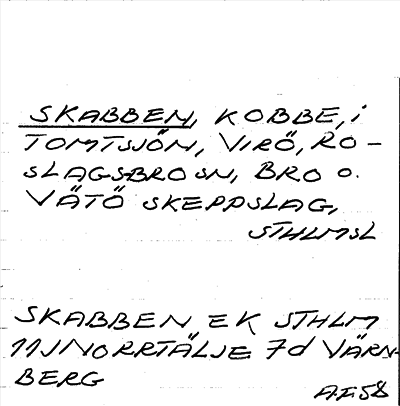 SKABBEN, KOBBE, i
TOMTSJÖN, VIRÖ, RO-
SLAGSBRO SN, BRO O.
VÄTÖ SKEPPSLAG,
STHLMSL
SKABBEN, EK STHLM
11J NORRTÄLJE 7d VÄRN-
BERG
A.F. 58